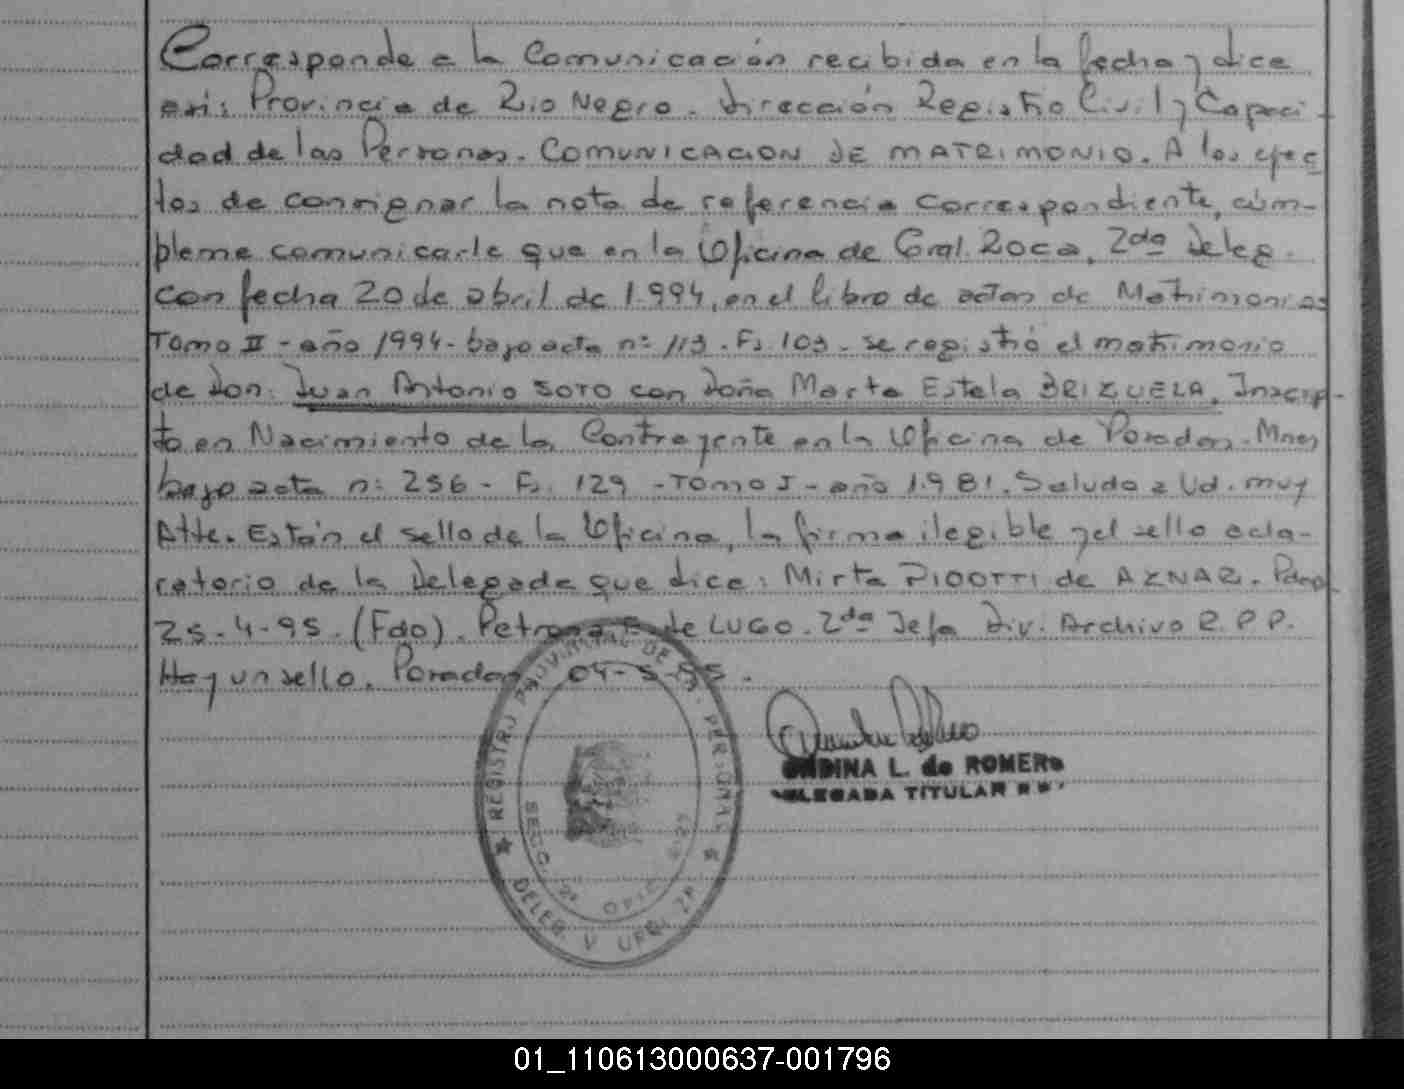 Corresponde a la Comunicación recibida en la fecha y dice
asi: Provincia de Rio Negro. Dirección Registro Civil y Capaci
dad de las Personas. COMUNICACION DE MATRIMONIO. A los efec
tos de consignar la nota de referencia correspondiente, cúm-
pleme comunicarle que en la Oficina de Gral. Roca, 2da Deleg.
con fecha 20 de abril de 1.994, en el libro de actas de Matrimonios
Tomo II - año 1994 - bajo acta n: 113 . Fs. 103 - se registró el matrimonio
de Don: Juan Antonio SOTO con Doña Marta Estela BRIZUELA, Inscrip-
to en Nacimiento de la Contrayente en la Oficina de Posadas. Mnes
bajo acta n: 256 - Fs. 129 - Tomo I - año 1.981. Saludo a Ud. muy
Atte. Están el sello de la Oficina, la firma ilegible y el sello acla-
ratorio de la Delegada que dice: Mirta PIOOTTI de AZNAR. Pdas
25-4-95. (Fdo). Petrona de LUGO. 2da Jefa Div. Archivo R.P.P.
Hay un sello. Posadas, 04-5-95.
REGISTRO PROVINCIAL DE PERSONAL
SECC. 2ª OFIC.
DELEG. V
L. de ROMERO
DELEGADA TITULAR
01_110613000637-001796